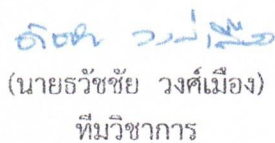 (นายธวัชชัย วงศ์เมือง)
ทีมวิชาการ